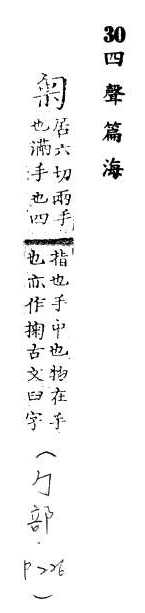 30四聲篇海
匊
居六切兩手
也滿手也四
指也手中也物在手
也亦作掬古文臼字
(勹部.
p226)